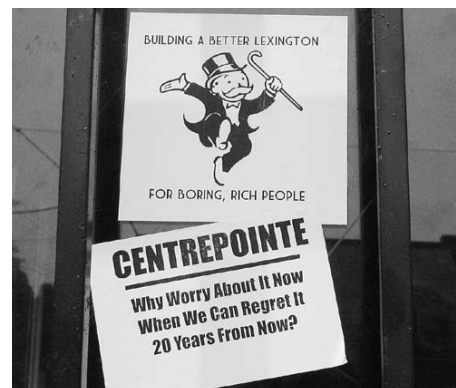 BUILDING A BETTER LEXINGTON
FOR BORING, RICH PEOPLE
CENTREPOINTE
Why Worry About It Now
When We Can Regret It
20 Years From Now?